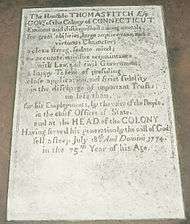 The Hon'ble THOMAS FITCH Esq.
Gov. of the Colony of CONNECTICUT
Eminent and distinguished among mortals
for great abilities, large acquirements, and a
virtuous Character;
a clear, strong, sedate mind;
an accurate, extensive acquaintance
with Law, and civil Government;
a happy Talent of presiding
close application, and strict Fidelity
in the discharge of important Truſts;
no less than
for his Employments, by the voice of the People,
in the chief Offices of State,
and at the HEAD of the COLONY
Having served his generation by the will of God
fell asleep July 18th Ano Domini 1774
in the 75th Year of his Age.